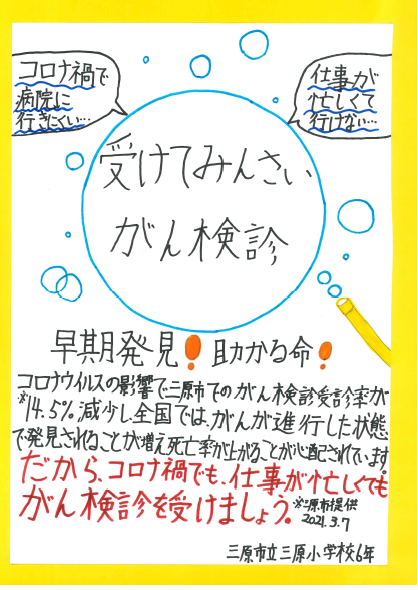 コロナ禍で
病院に
行きにくい…
仕事が
忙しくて
行けない…
受けてみんさい
がん検診
早期発見! 助かる命!
コロナウイルスの影響で三原市でのがん検診受診率が
※14.5%減少し、全国では、がんが進行した状態
で発見されることが増え死亡率が上がることが心配されています。
だから、コロナ禍でも、仕事が忙しくても
がん検診を受けましょう。
※三原市提供
2021.3.7
三原市立三原小学校6年